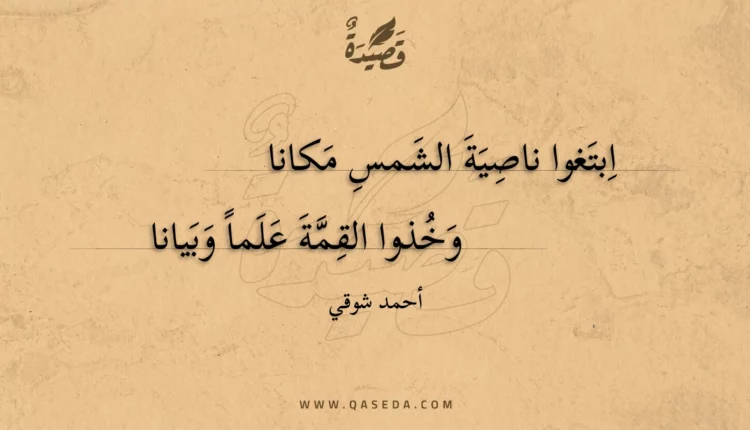 قَصِيْدَةٌ
اِبتَغوا ناصِيَةَ الشَمسِ مَكانا
وَخُذوا القِمَّةَ عَلَماً وَبَيانا
أحمد شوقي
WWW.QASEDA.COM